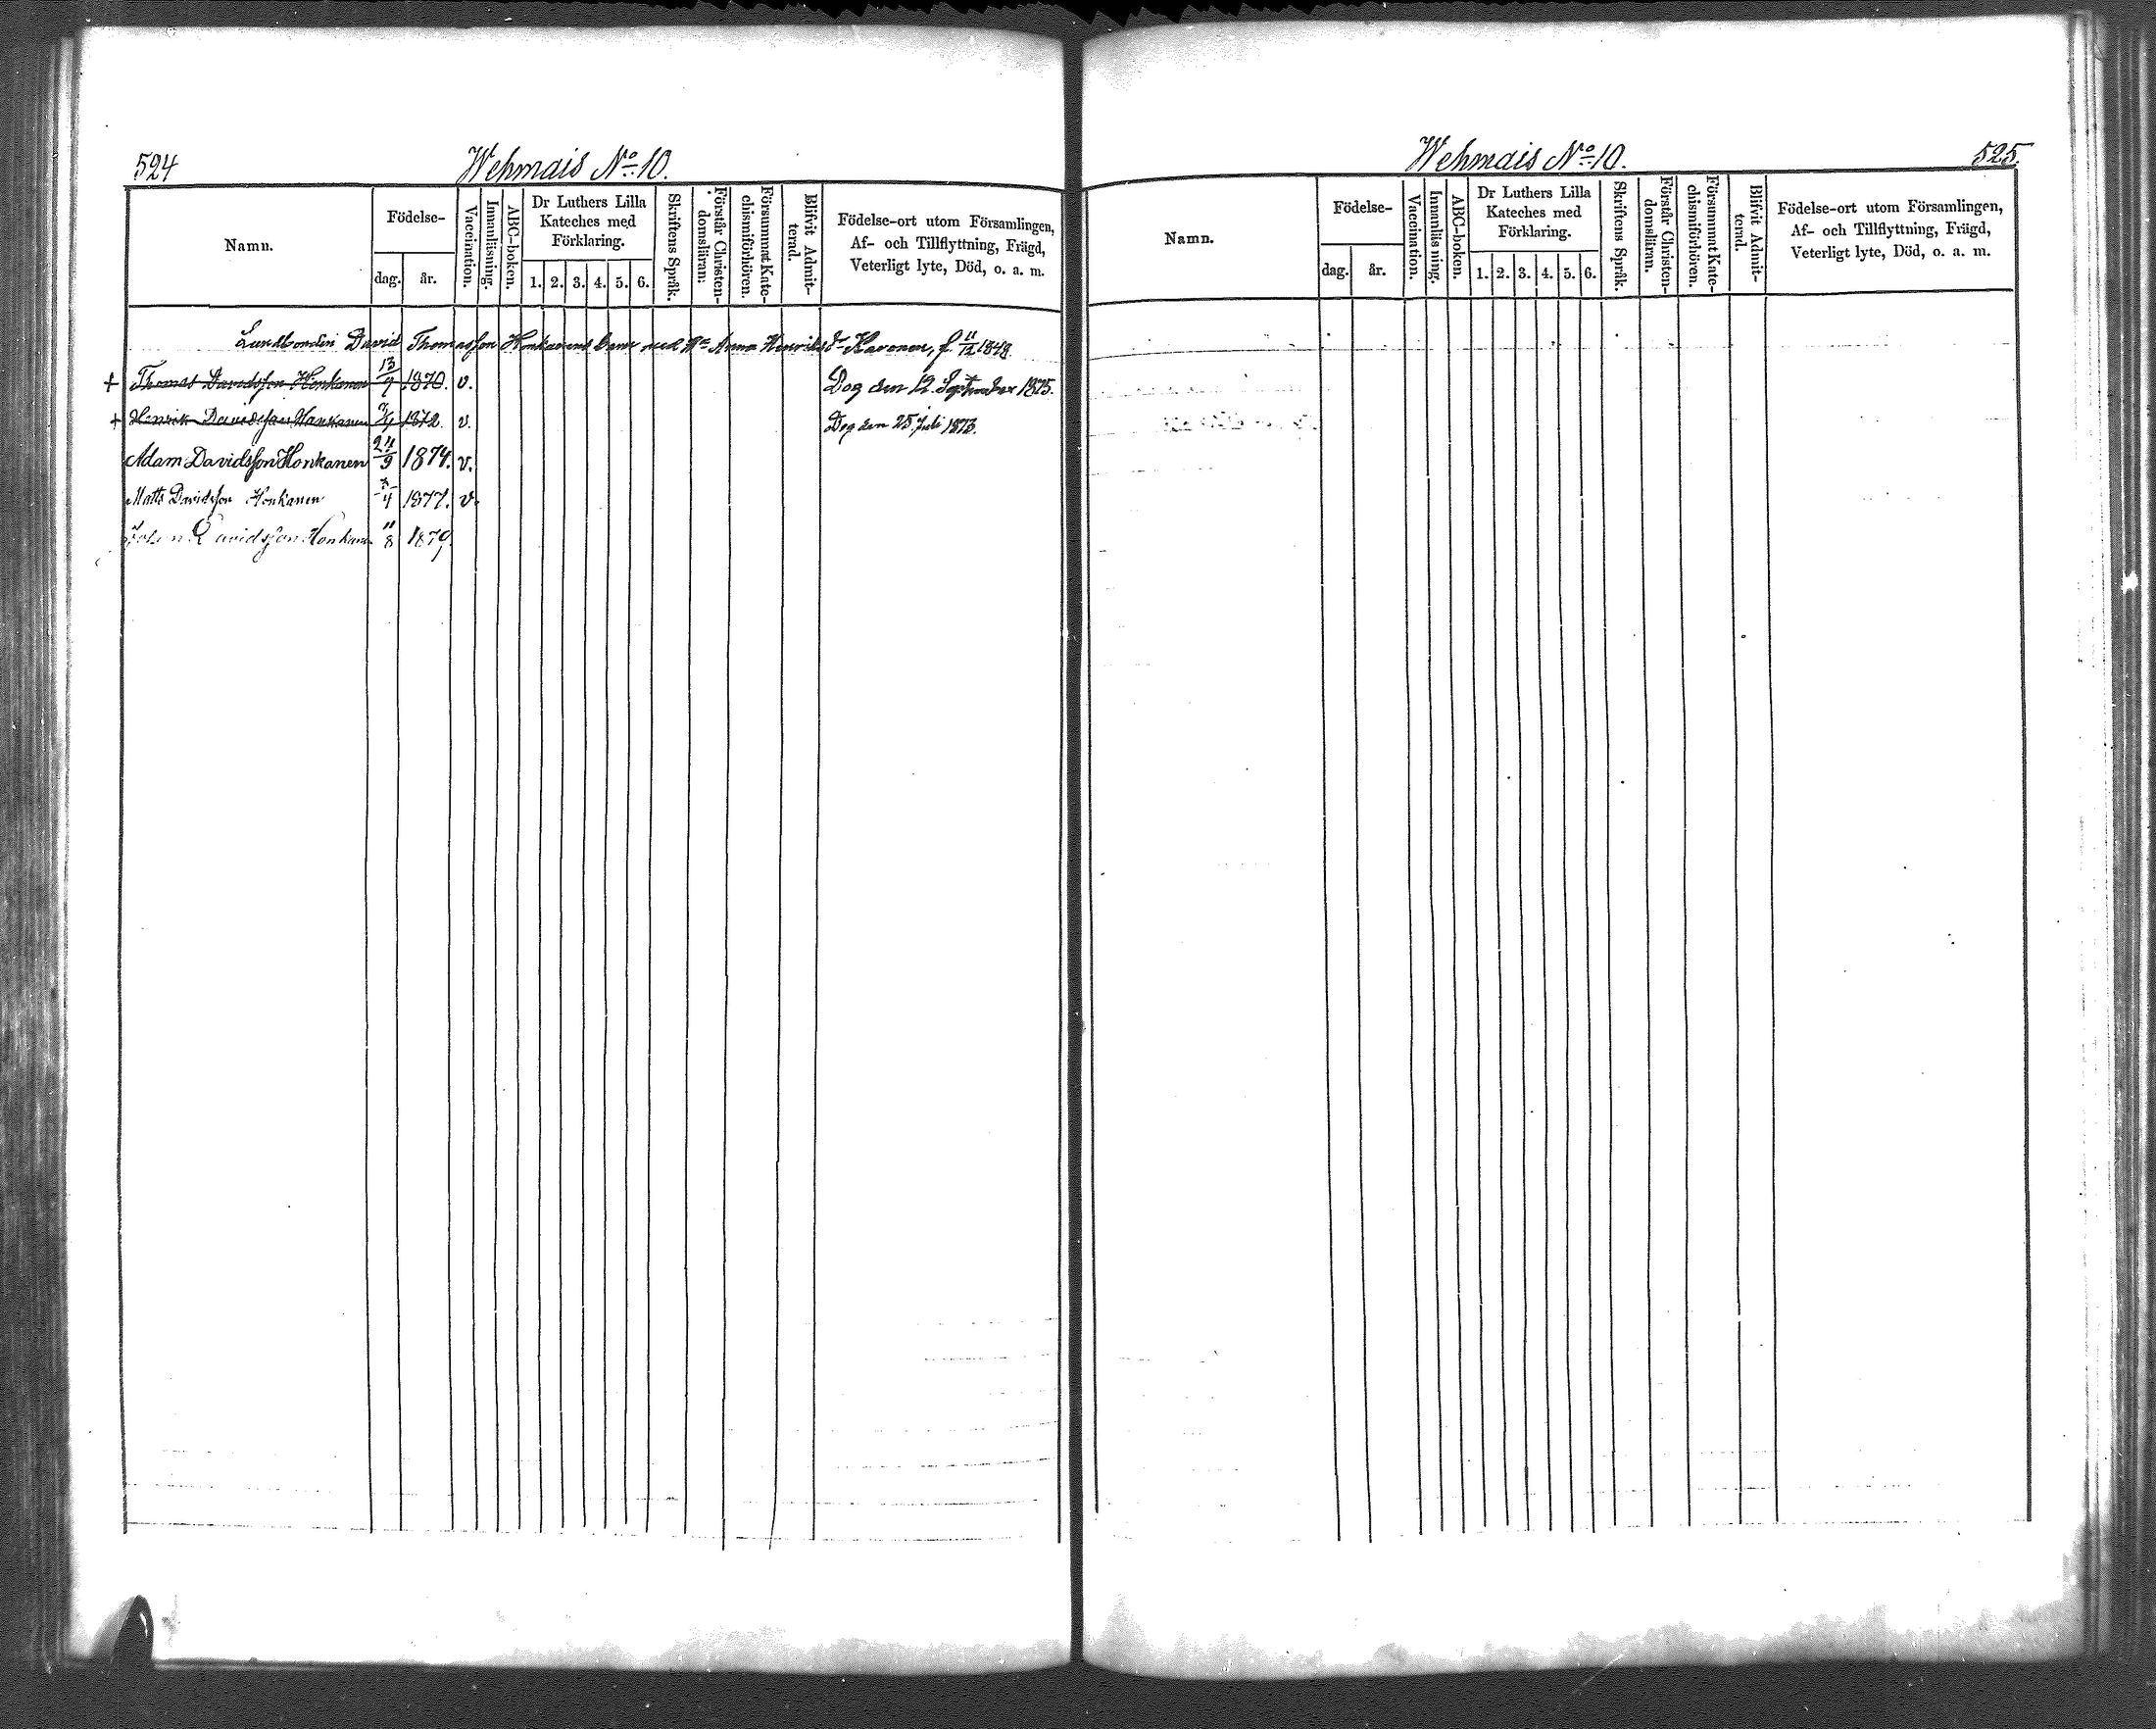 524
Wehmais No 10.
Namn.
Födelse-
dag.
år.
Vaccination.
Innanläsning.
ABC-boken.
Dr Luthers Lilla
Kateches med
Förklaring.
1. 2. 3. 4. 5. 6.
Skriftens Språk.
Förstår Christen-
domsläran.
Försummat Kate-
chismiförhören.
Blifvit Admit-
terad.
Födelse-ort utom Församlingen,
Af- och Tillflyttning, Frägd,
Veterligt lyte, Död, o. a. m.
David Thomasson Honkanens barn med Anna Henriksdr f 11/12 1848
+ Thomas Davidsson Honkanen 1870. v. Dog den 12. September 1875.
+ Henrik Davidsson Honkanen 1872. v. Dog den 25 Juli 1873.
Adam Davidsson Honkanen 24/9 1874. v.
Matts Davidsson Honkanen 1877. v.
Johan Davidsson Honkanen 11/8 1879.
Wehmais No 10.
525.
Namn.
Födelse-
dag.
år.
Vaccination.
Innanläsning.
ABC-boken.
Dr Luthers Lilla
Kateches med
Förklaring.
1. 2. 3. 4. 5. 6.
Skriftens Språk.
Förstår Christen-
domsläran.
Försummat Kate-
chismiförhören.
Blifvit Admit-
terad.
Födelse-ort utom Församlingen,
Af- och Tillflyttning, Frägd,
Veterligt lyte, Död, o. a. m.